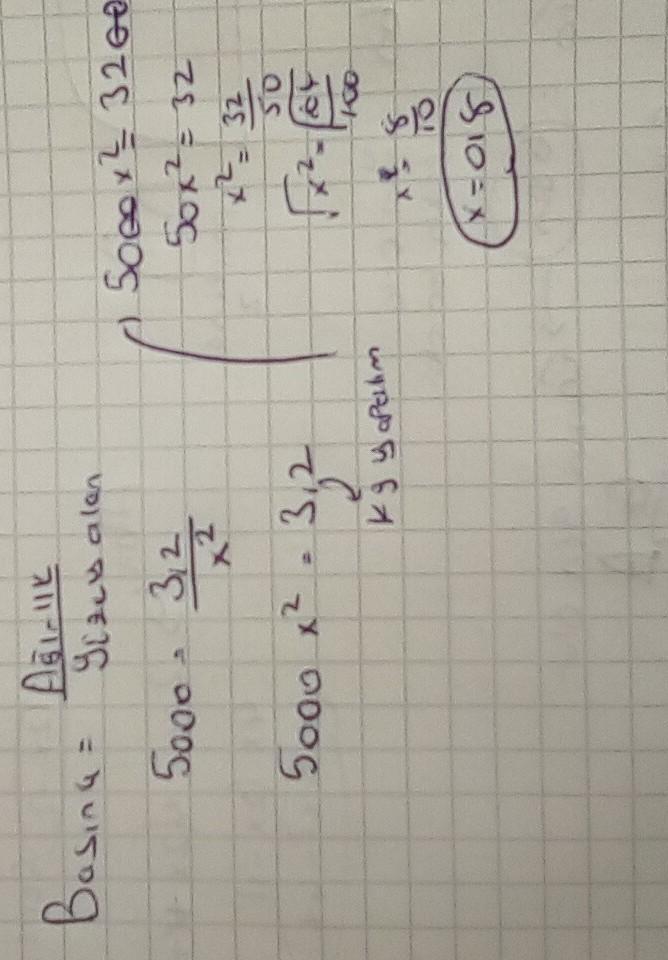 Basınç = Ağırlık
Yüzey alan
5000 = 3,2 / x²
5000 x² = 3,2
kg yapalım
5000x² = 3200
50x² = 32
x² = 32 / 50
√x² = √64 / 100
x = 8 / 10
x = 0,8